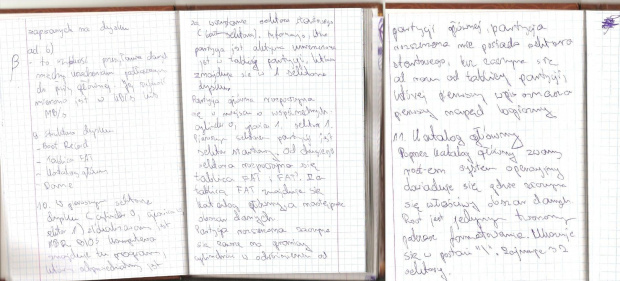 zapisanych na dysku
ad 6)
β - to szybkość przesyłania danych
między urządzeniem
do płyty głównej. Jej szybkość
mierzona jest w kB/s lub
MB/s
9. struktura dysku
- Boot Record
- tablica FAT
- katalog główny
- Dane
10. W pierwszym sektorze
dysku (cylinder 0, głowica
sektor 1) zlokalizowany jest
MBR. BIOS
znajduje tu program,
który odpowiedzialny jest
za wczytanie sektora startowego
(boot sektora). Informacja, która
partycja jest aktywna umieszczona
jest w tablicy partycji, która
znajduje się w 1 sektorze
dysku
Partycja główna rozpoczyna
się w miejscu o współrzędnych
cylinder 0, głowica 1, sektor 1.
Pierwszy sektorem partycji jest
sektor startowy, od drugiego
sektora rozpoczyna się
tablica FAT i FAT1. Za
tablicą FAT znajduje się
katalog główny a następnie
obszar danych.
Partycja rozszerzona zaczyna
się zawsze na granicy
cylindrów w odróżnieniu od
partycji głównej, partycja
rozszerzona nie posiada sektora
startowego, lecz zaczyna się
od razu od tablicy partycji,
której pierwszy wpis oznacza
pierwszy napęd logiczny
11. Katalog główny
Poprzez katalog główny zwany
root-em system operacyjny
dowiaduje się gdzie zaczyna
się właściwy obszar danych.
Root jest jedynym tworzony
podczas formatowania. Ukazuje
się w postaci "\". Zajmuje 32
sektory.